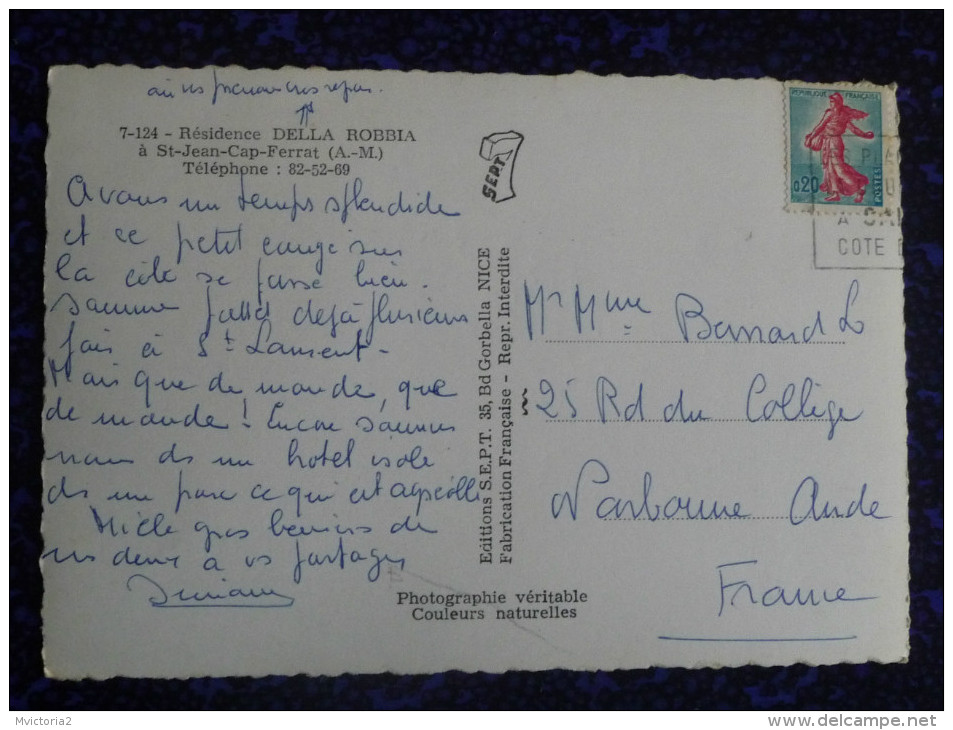 où ns prenons nos repas.
7-124 - Résidence DELLA ROBBIA
à St-Jean-Cap-Ferrat (A.-M.)
Téléphone : 82-52-69
Avons un temps splendide
et ce petit congé sur
la côte se passe bien.
Sommes passés déjà plusieurs
fois à St Laurent.
Mais que de monde, que
de monde ! Encore sommes
nous ds un hôtel isolé
ds un parc ce qui est agréable
Mille gros baisers de
ns deux à vs partager
SEPT
Editions S.E.P.T. 35, Bd Gorbella NICE
Fabrication Française - Repr. Interdite
Photographie véritable
Couleurs naturelles
REPUBLIQUE FRANÇAISE
0,20
POSTES
COTE D
Mr Mme Bernard L
25 Bd du Collège
Narbonne Aude
France
Mvictoria2
www.delcampe.net